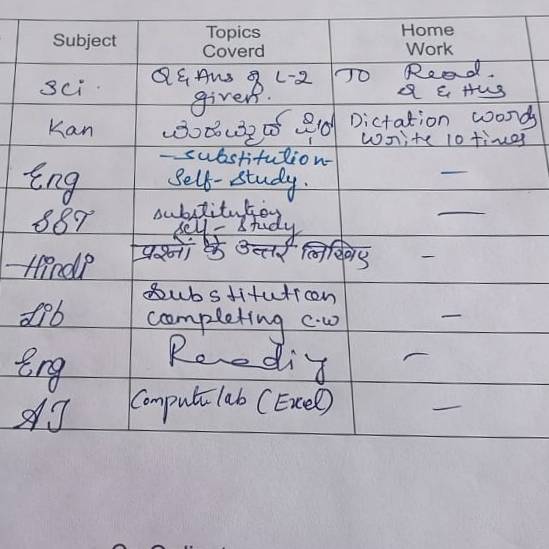 Subject Topics Coverd Home Work
Sci. Q & Ans of L-2 given. TO Read. Q & Ans
Kan Dictation words write 10 times
Eng - Substitution - Self - Study. -
SST substitution self - study -
Hindi प्रश्नों के उत्तर लिखिए -
Lib Substitution completing c.w -
Eng Reading -
AI Computer lab (Excel) -